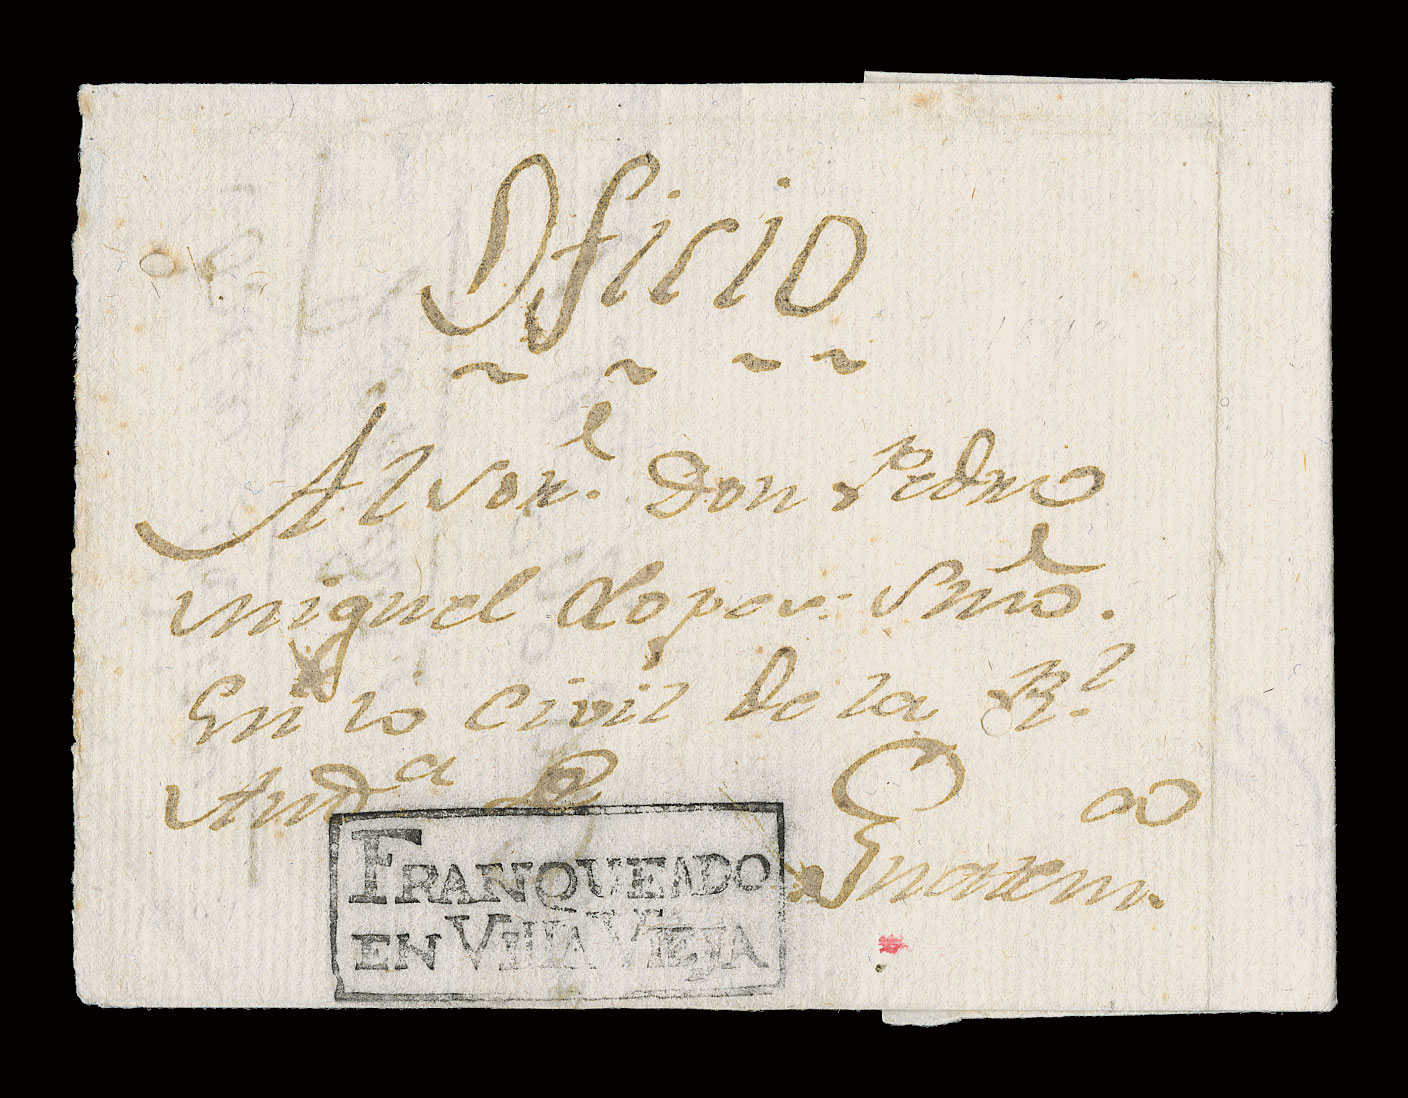 Oficio
Al Sor.l Don Pedro
Miguel Lopez. Srnõ.
En lo Civil de la R.l
Aud.a
Guatem.a
FRANQUEADO
EN VILLA VIEJA